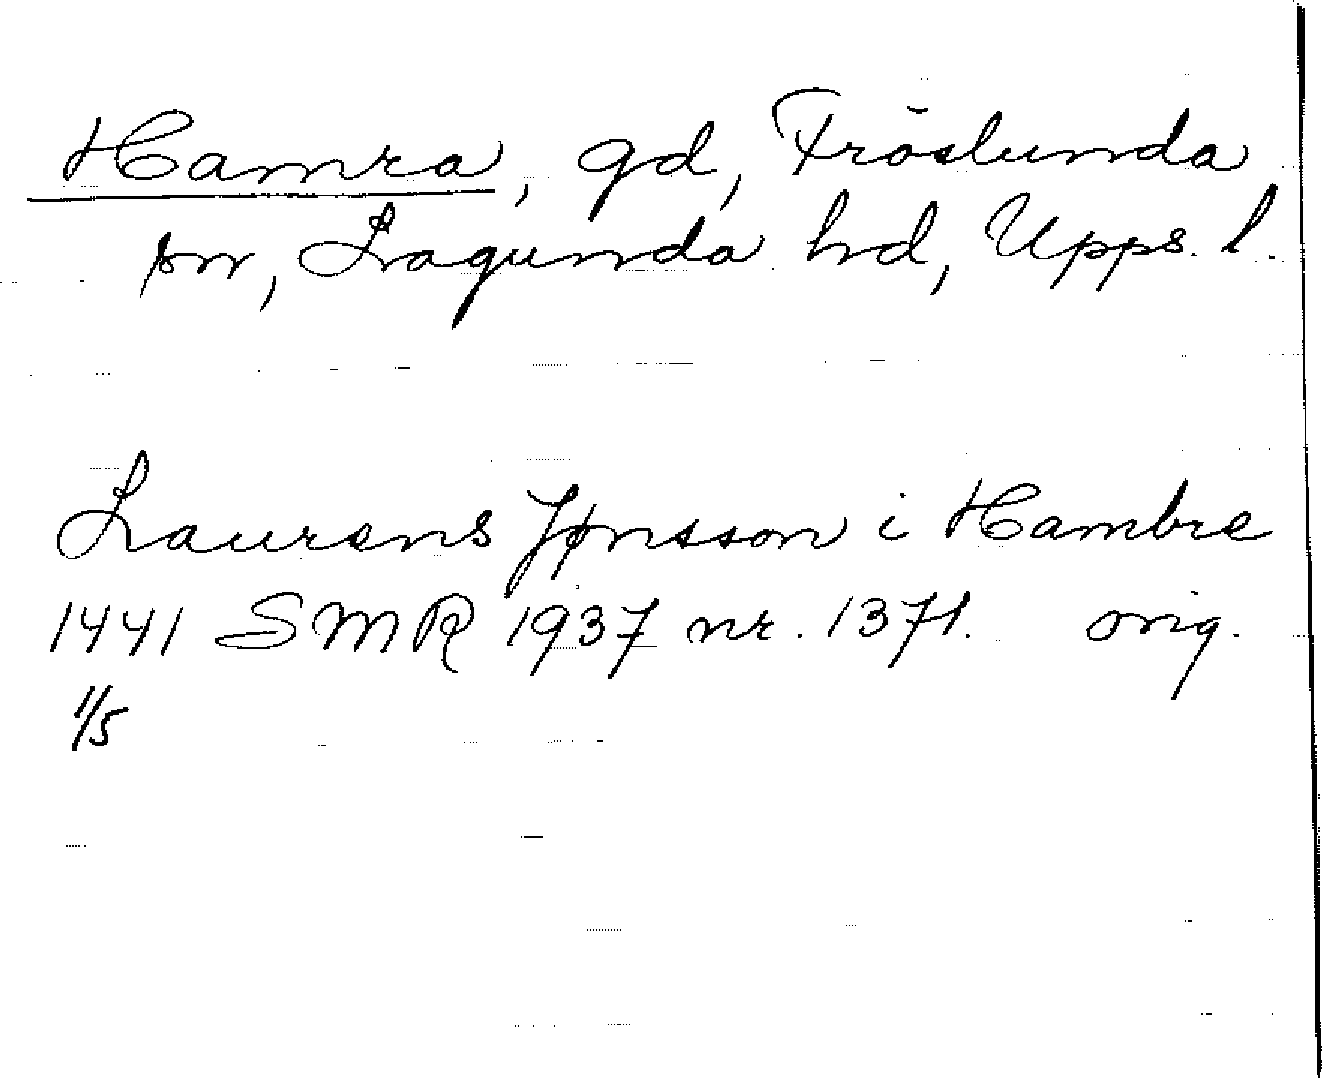 Hamra, gd, Fröslunda
sn, Lagunda hd, Upps. l.
Laurens Jønsson i Hambre
1441 SMR 1937 nr. 1371. orig.
1/5